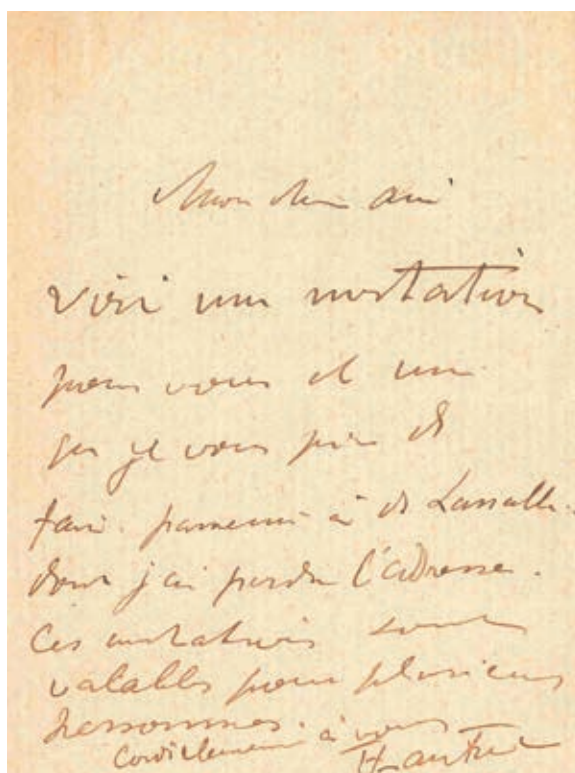 Mon cher ami
voici une invitation
pour vous et une
que je vous prie de
faire parvenir à de Lassalle.
dont j'ai perdu l'adresse.
Ces invitations sont
valables pour plusieurs
personnes.
Cordialement à vous
HLautrec